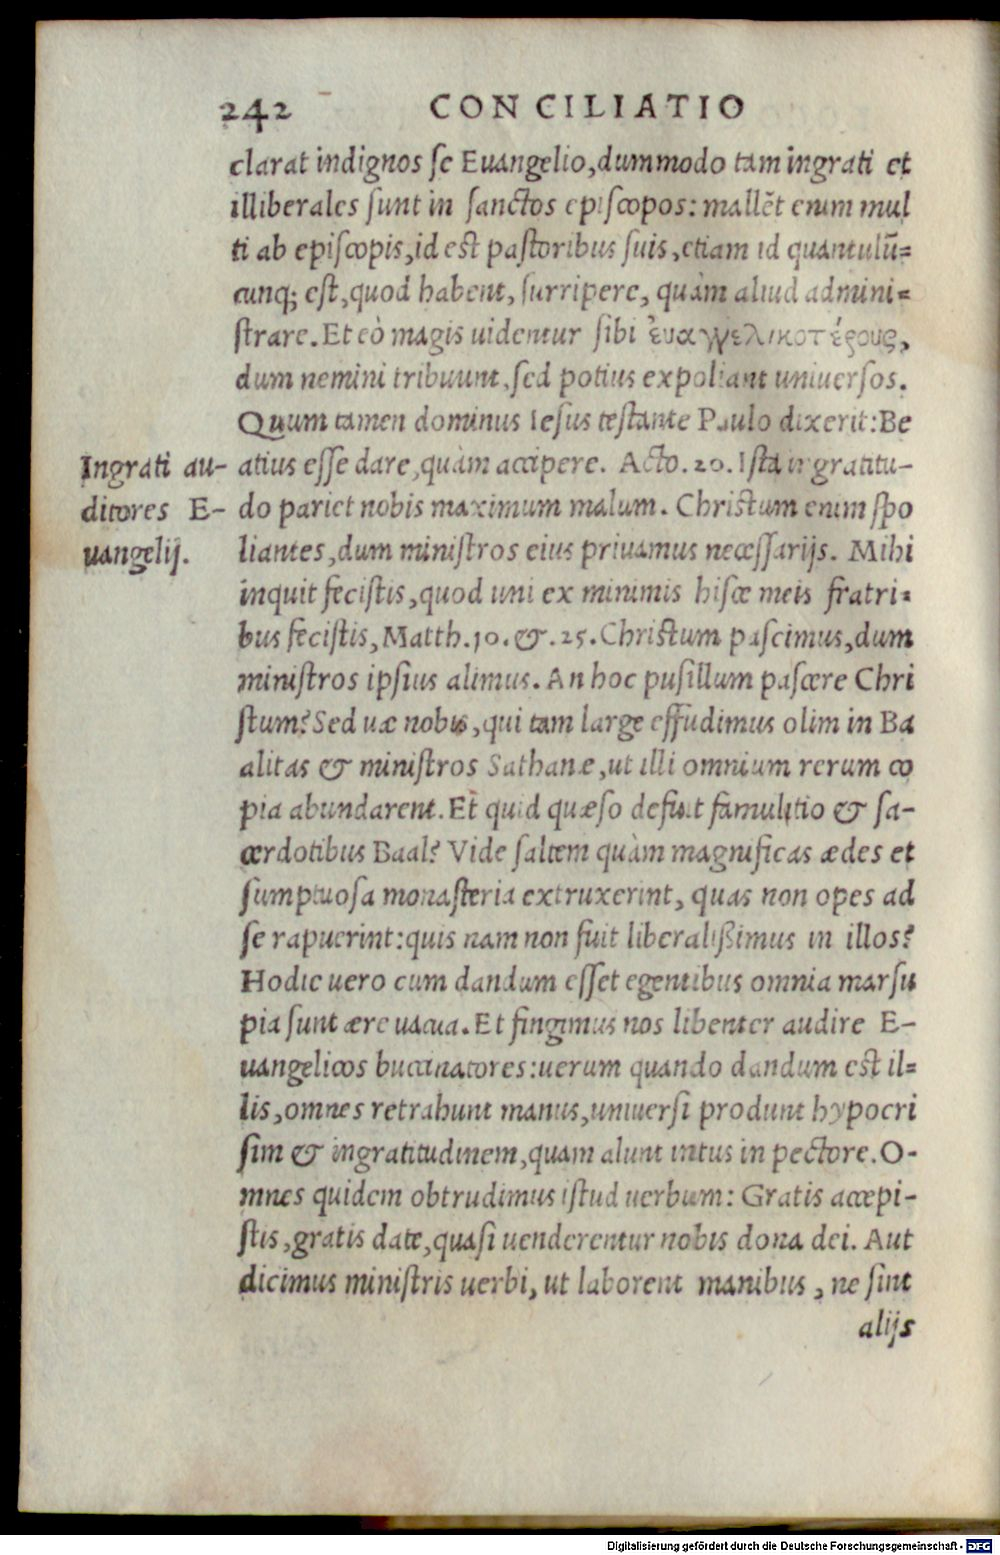 242 CONCILIATIO
clarat indignos se Euangelio, dummodo tam ingrati et
illiberales sunt in sanctos episcopos: mallẽt enim mul
ti ab episcopis, id est pastoribus suis, etiam id quantulũ=
cunq; est, quod habent, surripere, quàm aliud admini=
strare. Et eò magis uidentur sibi ἐυαγγελικοτέρους,
dum nemini tribuunt, sed potius expoliant uniuersos.
Quum tamen dominus Iesus testante Paulo dixerit: Be
atius esse dare, quàm accipere. Acto. 20. Ista ingratitu-
do pariet nobis maximum malum. Christum enim spo
liantes, dum ministros eius priuamus necessarijs. Mihi
inquit fecistis, quod uni ex minimis hisce meis fratri=
bus fecistis, Matth. 10. & .25. Christum pascimus, dum
ministros ipsius alimus. An hoc pusillum pascere Chri
stum? Sed uæ nobis, qui tam large effudimus olim in Ba
alitas & ministros Sathanæ, ut illi omnium rerum co
pia abundarent. Et quid quæso defuit famulitio & sa-
cerdotibus Baal? Vide saltem quàm magnificas ædes et
sumptuosa monasteria extruxerint, quas non opes ad
se rapuerint: quis nam non fuit liberalißimus in illos?
Hodie uero cum dandum esset egentibus omnia marsu
pia sunt ære uacua. Et fingimus nos libenter audire E-
uangelicos buccinatores: uerum quando dandum est il=
lis, omnes retrahunt manus, uniuersi produnt hypocri
sim & ingratitudinem, quam alunt intus in pectore. O-
mnes quidem obtrudimus istud uerbum: Gratis accepi-
stis, gratis date, quasi uenderentur nobis dona dei. Aut
dicimus ministris uerbi, ut laborent manibus, ne sint
alijs
Ingrati au-
ditores E-
uangelij.
Digitalisierung gefördert durch die Deutsche Forschungsgemeinschaft - DFG